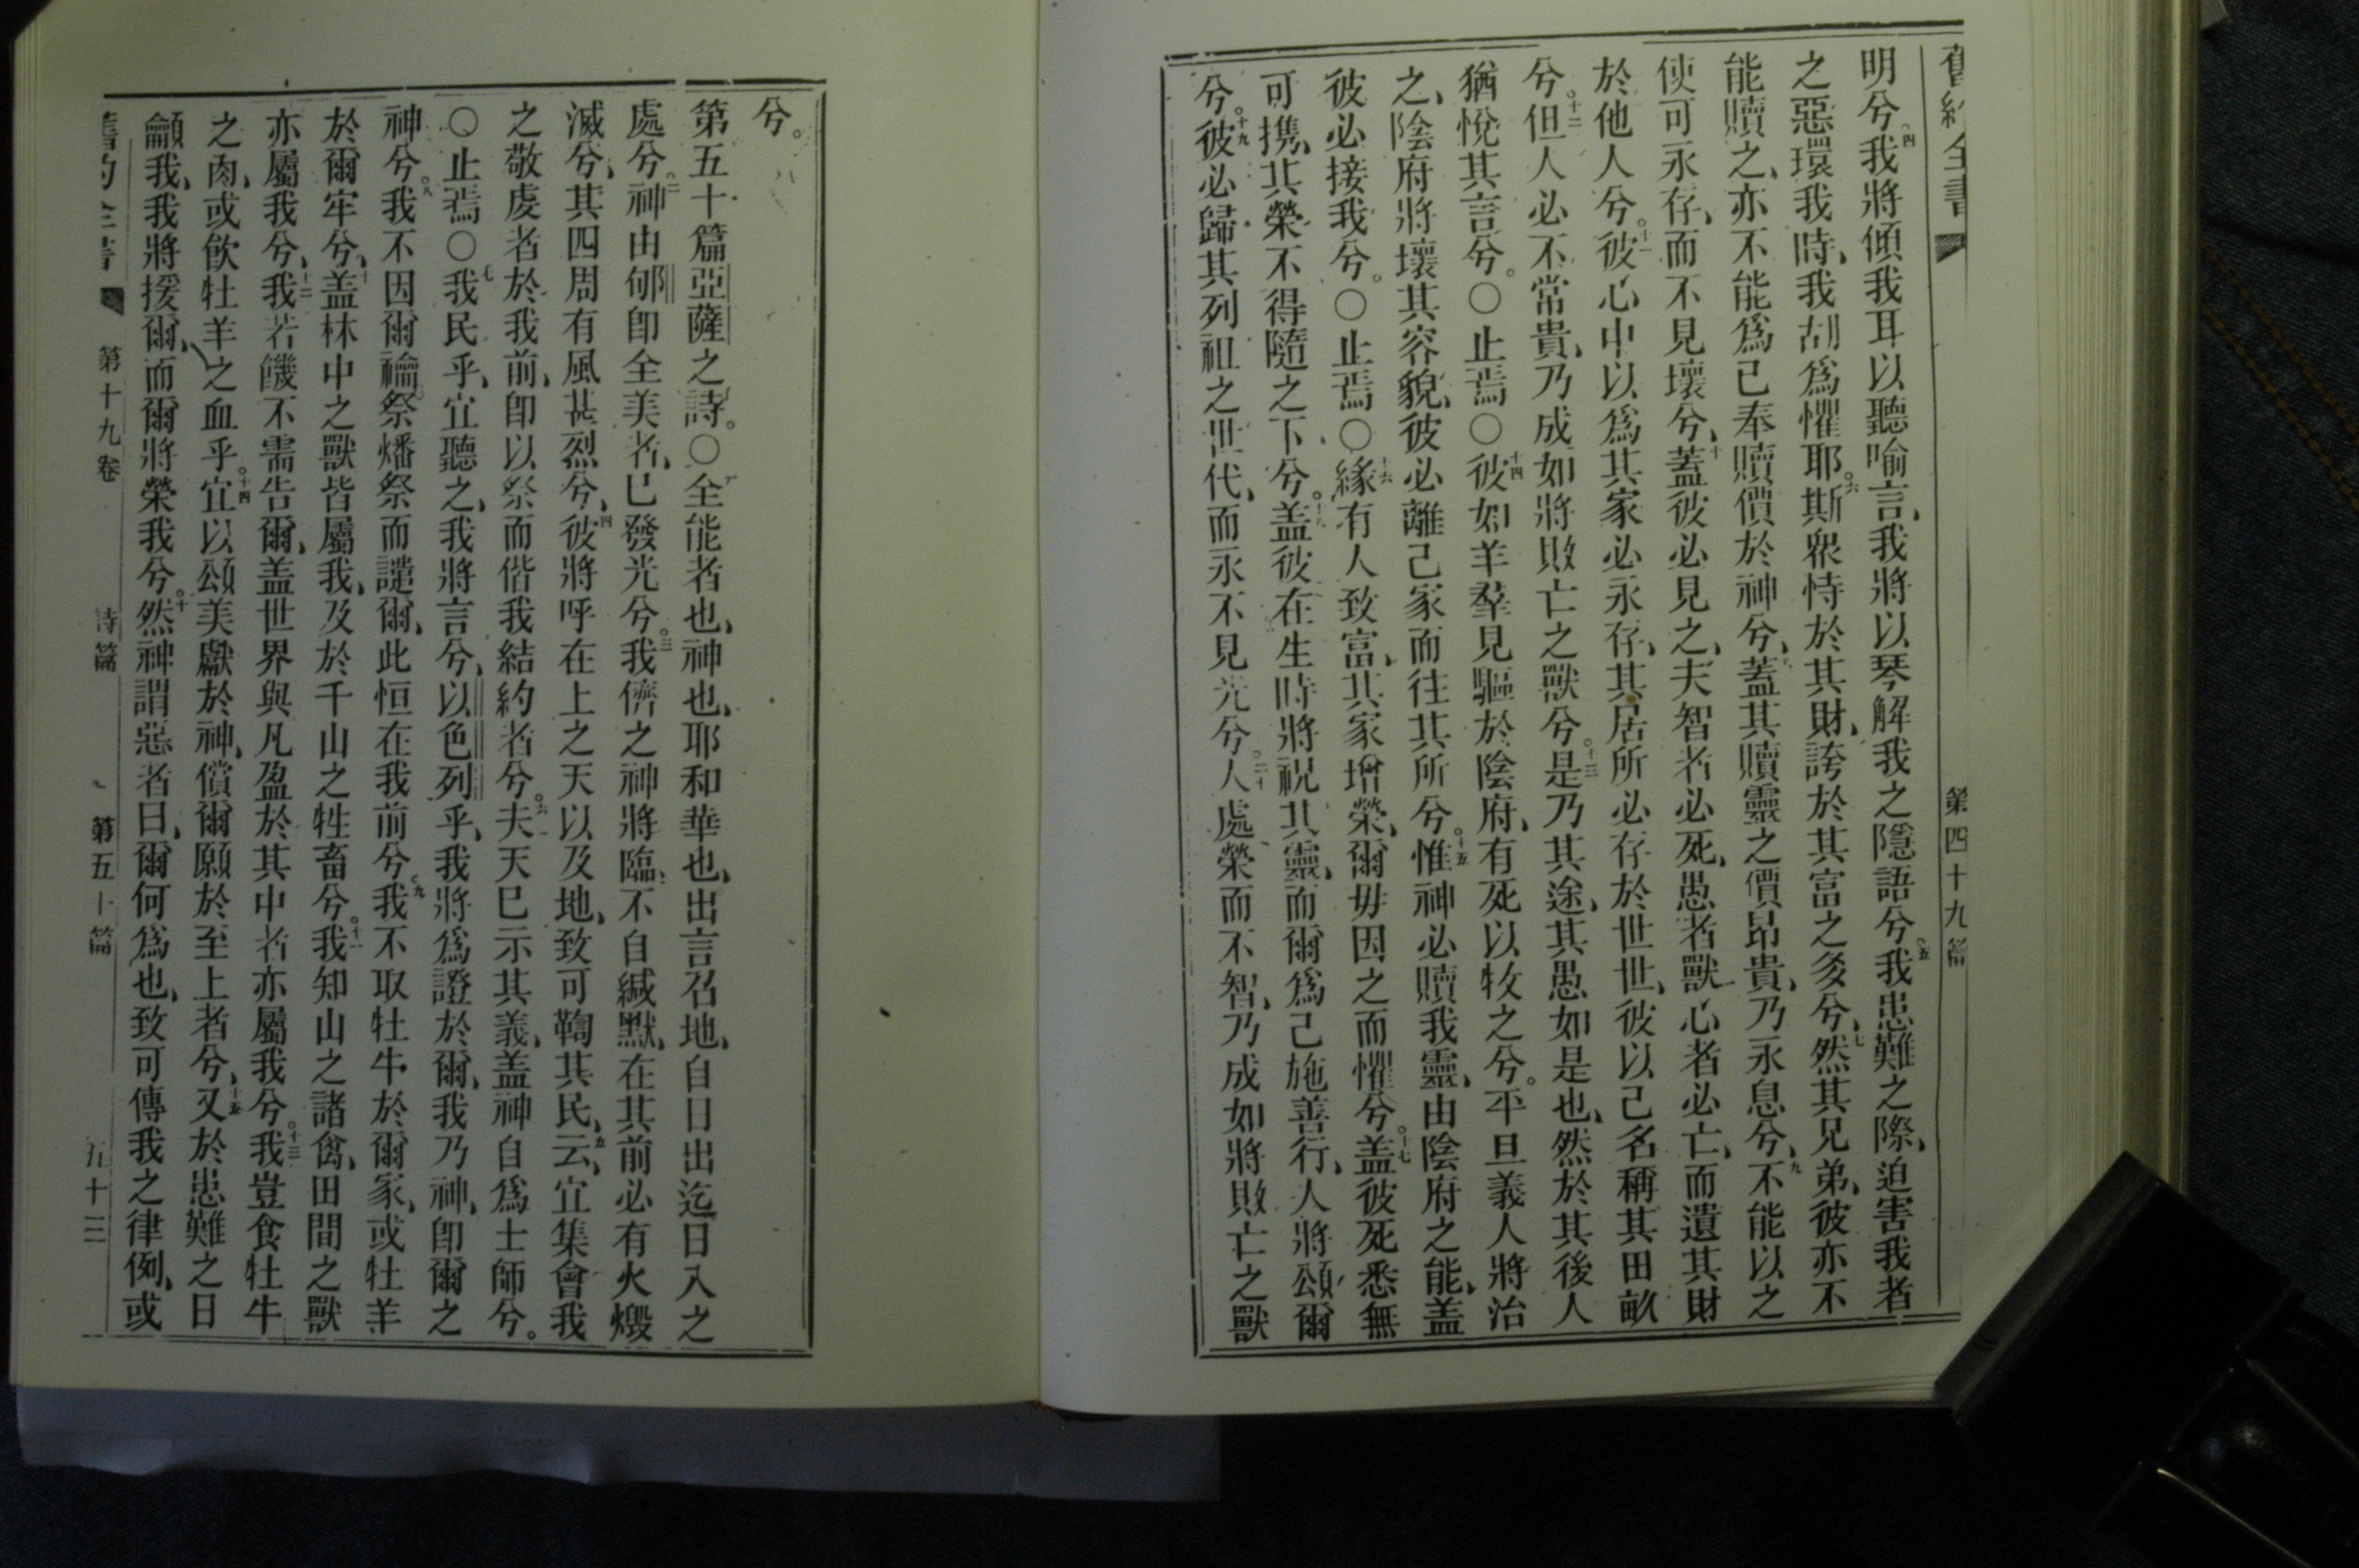 舊約全書 第四十九篇
明兮。四我將傾我耳以聽喻言、我將以琴解我之隱語兮。五我患難之際、迫害我者
之惡環我時、我胡爲懼耶。六斯衆恃於其財、誇於其富之多兮、七然其兄弟、彼亦不
能贖之、亦不能爲己奉贖價於神兮、八蓋其贖靈之價昂貴、乃永息兮、九不能以之
使可永存、而不見壞兮、十蓋彼必見之、夫智者必死、愚者獸心者必亡、而遺其財
於他人兮。十一彼心中以爲其家必永存、其居所必存於世世、彼以己名稱其田畝
兮。十二但人必不常貴、乃成如將敗亡之獸兮。十三是乃其途、其愚如是也、然於其後人
猶悅其言兮。○止焉○十四彼如羊羣見驅於陰府、有死以牧之兮。平旦義人將治
之、陰府將壞其容貌、彼必離己家而往其所兮。十五惟神必贖我靈、由陰府之能、蓋
彼必接我兮。○止焉○十六緣有人致富、其家增榮、爾毋因之而懼兮。十七蓋彼死悉無
可携、其榮不得隨之下兮。十八蓋彼在生時將祝其靈、而爾爲己施善行、人將頌爾
兮。十九彼必歸其列祖之世代、而永不見光兮。二十人處榮而不智、乃成如將敗亡之獸
兮。
第五十篇亞薩之詩。○全能者也、神也、耶和華也、出言召地、自日出迄日入之
處兮。二神由郇卽全美者、已發光兮。三我儕之神將臨、不自緘默、在其前必有火燬
滅兮、其四周有風甚烈兮、四彼將呼在上之天以及地、致可鞫其民、五云、宜集會我
之敬虔者於我前、卽以祭而偕我結約者兮。六夫天已示其義、蓋神自爲士師兮。
○止焉○七我民乎、宜聽之、我將言兮、以色列乎、我將爲證於爾、我乃神、卽爾之
神兮。八我不因爾禴祭燔祭而譴爾、此恒在我前兮。九我不取牡牛於爾家、或牡羊
於爾牢兮、十蓋林中之獸皆屬我、及於千山之牲畜兮。十一我知山之諸禽、田間之獸
亦屬我兮、十二我若饑不需告爾、蓋世界與凡盈於其中者亦屬我兮。十三我豈食牡牛
之肉、或飮牡羊之血乎。十四宜以頌美獻於神、償爾願於至上者兮、十五又於患難之日
龥我、我將援爾、而爾將榮我兮。十然神謂惡者曰、爾何爲也、致可傳我之律例、或
舊約全書 第十九卷 詩篇 第五十篇 五十三